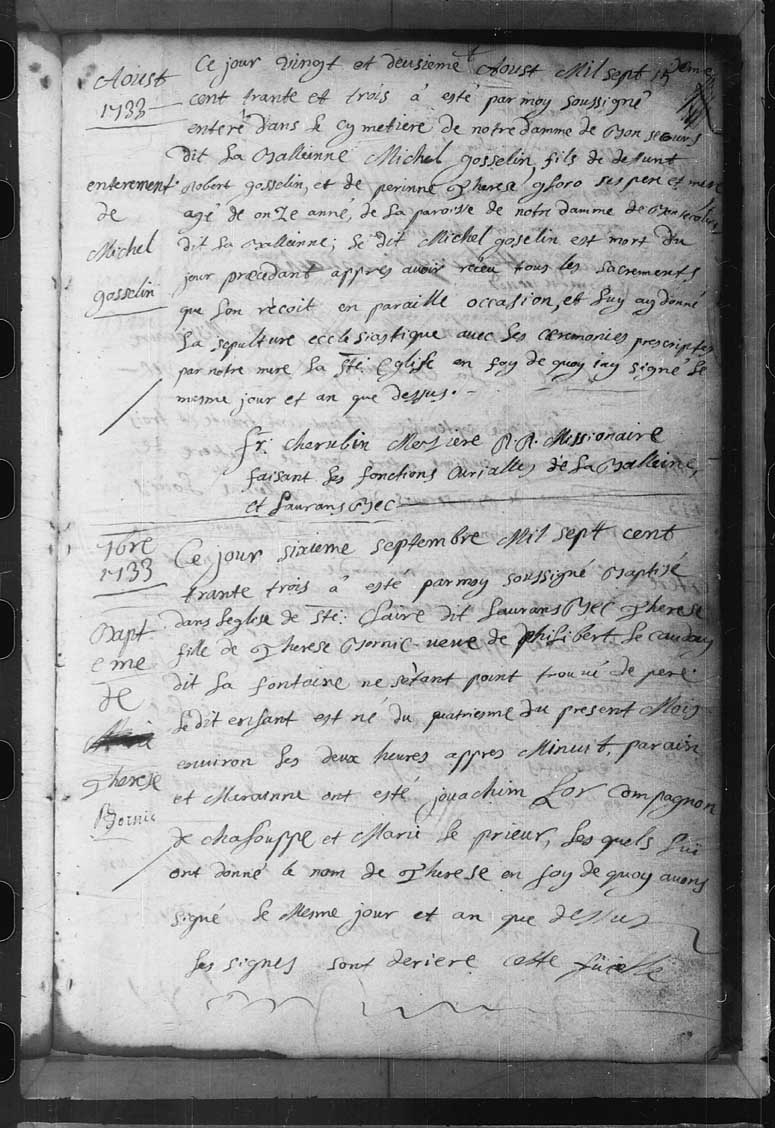 Aoust
1733
enterement
de
Michel
gosselin
Ce jour vingt et deusieme Aoust Mil sept
cent trante et trois a esté par moy soussigné
enteré dans le cymetiere de notre damme de Bon secours
dit La Balleinne Michel gosselin fils de defunt
Robert gosselin, et de perinne Therese gloro ses pere et mere
agé de onze anné, de la paroisse de notre damme de Bon secours
dit La Balleinne; le dit Michel goselin est mort du
jour precedant appres avoir receu tous les sacrements
que lon recoit en paraille occasion, et luy ay donné
La sepulture ecclesiastique avec les ceremonies prescriptes
par notre mere La Ste: Eglise en foy de quoy iay signé le
mesme jour et an que dessus.-
fr: cherubin Messiere R. R. Missionaire
faisant les fonctions curialles de La Balleine,
et Laurans Bec
7bre
1733
Bapt
eme
de
Therese
Bornic
Ce jour sixieme septembre Mil sept cent
trante trois a esté par moy soussigné Baptisé
dans leglise de Ste: Claire dit Laurans Bec Therese
fille de Therese Bornic veuve de philibert Le caudau
dit La fontaine ne sètant point trouvé de pere
Le dit enfant est né du quatriesme du present Mois
environ les deux heures appres Minuit, parain
et Marainne ont esté jouachim Lor Compagnon
de chalouppe et Marie Le prieur, les quels lui
ont donné le nom de Therese en foy de quoy avons
signé le Mesme jour et an que dessus
Les signes sont deriere cette fuielle